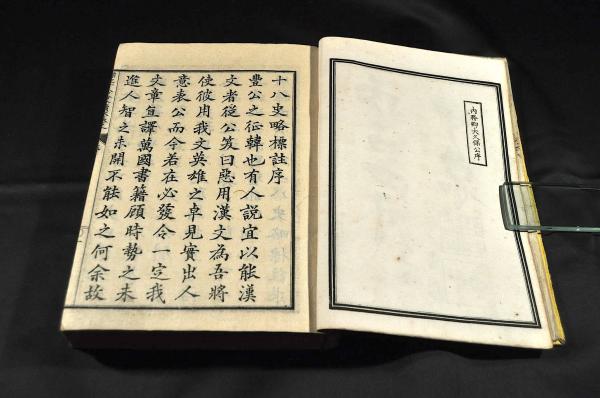 内務卿大久保公序
十八史略標註序
豐公之征韓也有人説宜以能漢
文者從公笑曰惡用漢文為吾將
使彼用我文英雄之卓見實出人
意表公而今若在必發令一定我
文章宣譯萬國書籍顧時勢之未
進人智之未開不能如之何余故